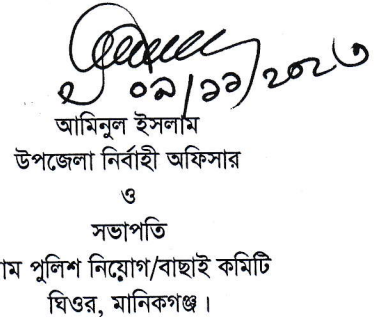 ০৯/১১/২০২৩
আমিনুল ইসলাম
উপজেলা নির্বাহী অফিসার
ও
সভাপতি
াম পুলিশ নিয়োগ/বাছাই কমিটি
ঘিওর, মানিকগঞ্জ।